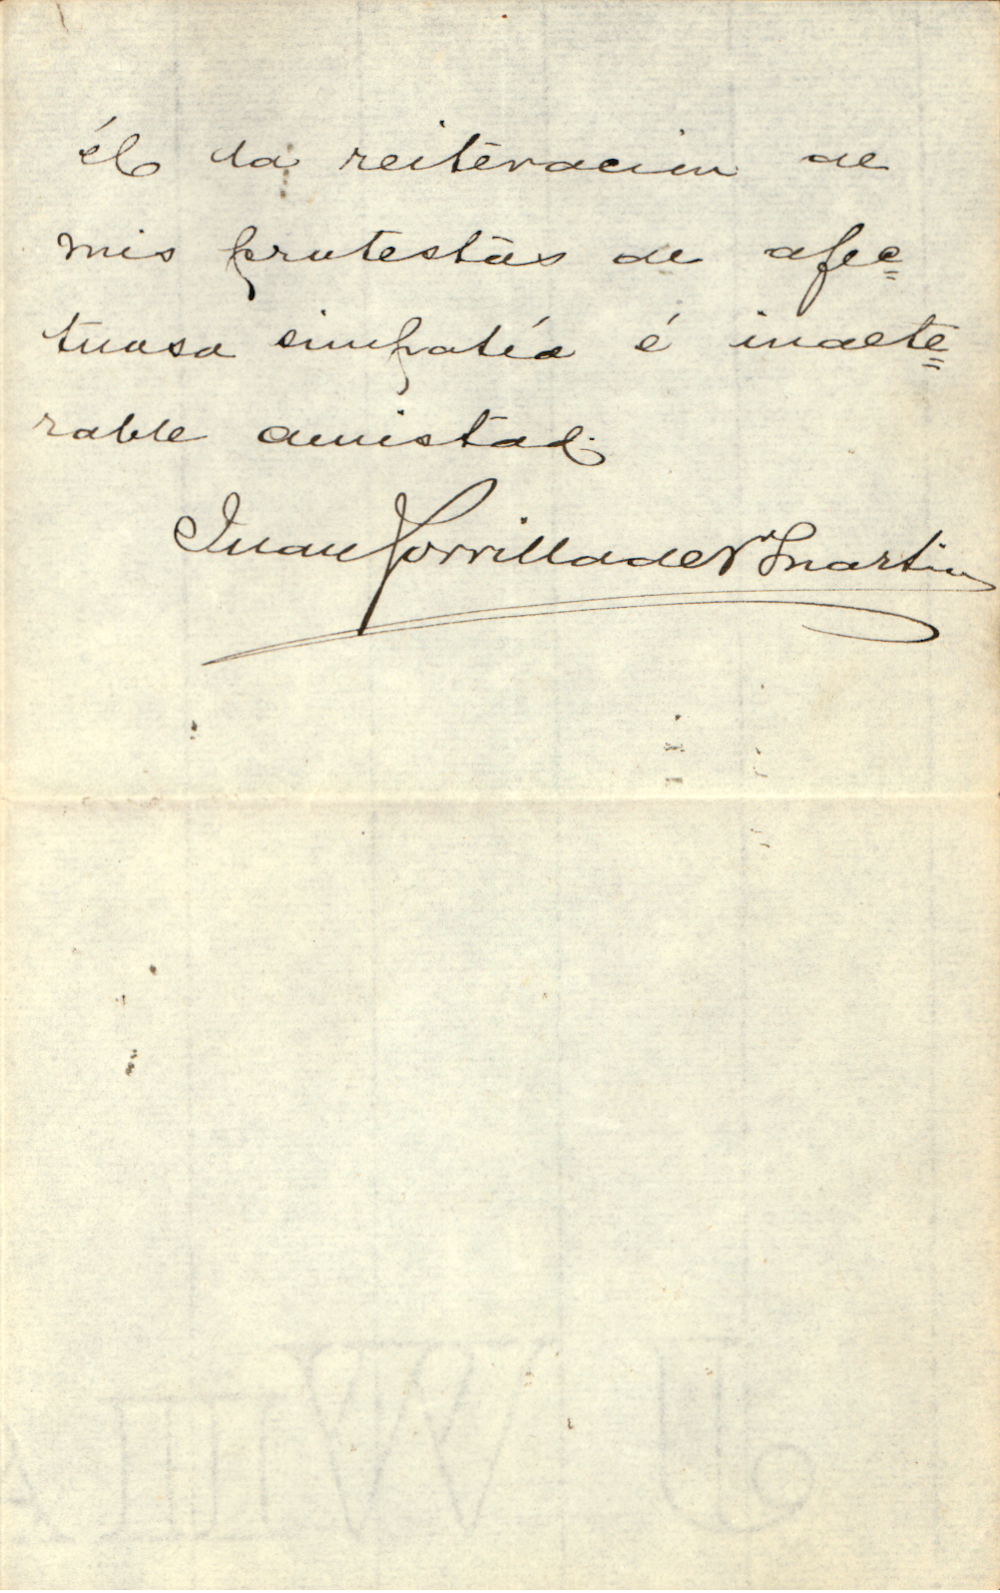 él la reiteracion de
mis protestas de afec=
tuosa simpatía é inalte=
rable amistad.
Juan Zorrilla de Sn Martin